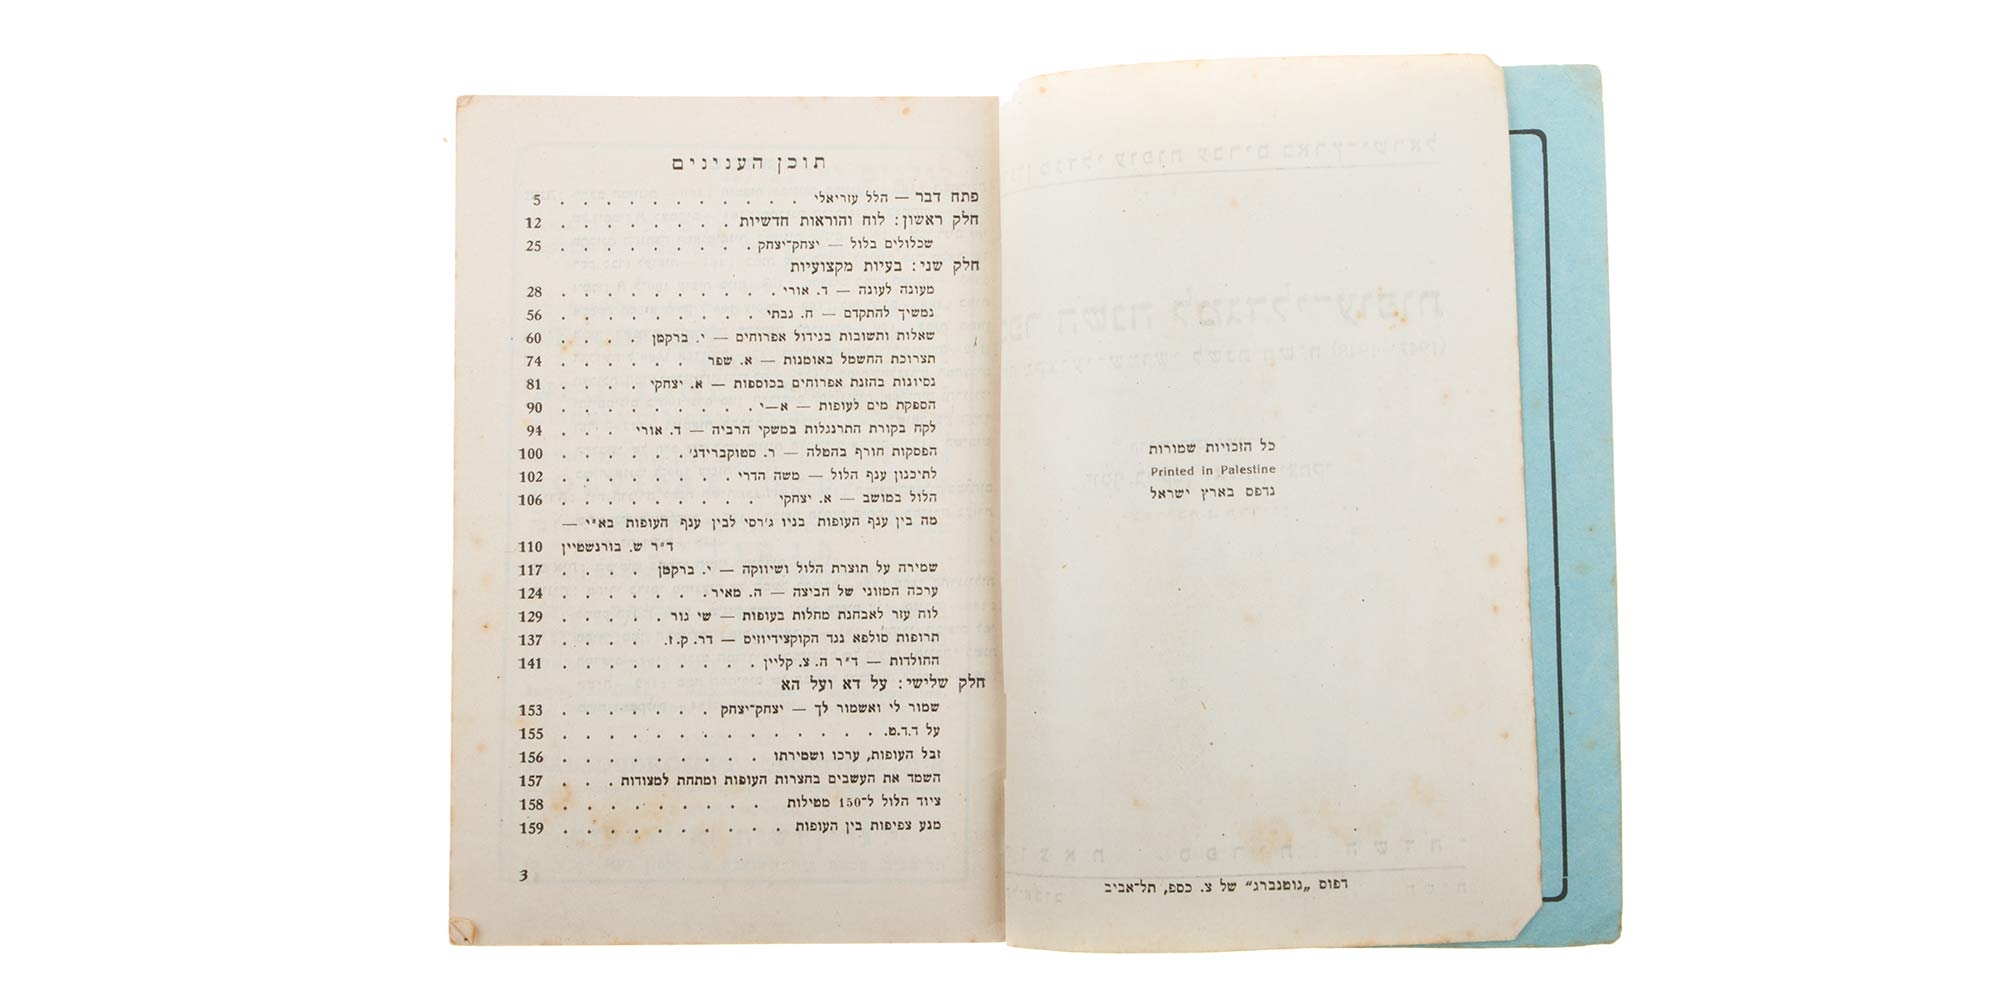 כל הזכויות שמורות
Printed in Palestine
נדפס בארץ ישראל
דפוס „גוטנברג" של צ. כספ, תל־אביב
תוכן הענינים
פתח דבר — הלל עזריאלי . . . . . . . . . . 5
חלק ראשון: לוח והוראות חדשיות . . . . . . . 12
שכלולים בלול — יצחק־יצחק . . . . . . . . 25
חלק שני: בעיות מקצועיות
מעונה לעונה — ד. אורי . . . . . . . . . 28
נמשיך להתקדם — ח. גבתי . . . . . . . . . 56
שאלות ותשובות בגידול אפרוחים — י. ברקמן . . . . 60
תצרוכת החשמל באומנות — א. שפר . . . . . . 74
נסיונות בהזנת אפרוחים בכוספות — א. יצחקי . . . . 81
הספקת מים לעופות — א—י . . . . . . . . . 90
לקח בקורת התרנגלות במשקי הרביה — ד. אורי . . . 94
הפסקות חורף בהטלה — ר. סטוקברידג' . . . . . . 100
לתיכנון ענף הלול — משה הדרי . . . . . . . . 102
הלול במושב — א. יצחקי . . . . . . . . . 106
מה בין ענף העופות בניו ג'רסי לבין ענף העופות בא״י —
ד״ר ש. בורנשטיין 110
שמירה על תוצרת הלול ושיווקה — י. ברקמן . . . . 117
ערכה המזוני של הביצה — ה. מאיר . . . . . . . 124
לוח עזר לאבחנת מחלות בעופות — שי גור . . . . . 129
תרופות סולפא נגד הקוקצידיוזים — דר. ק. ז. . . . . 137
החולדות — ד״ר ה. צ. קליין . . . . . . . . . 141
חלק שלישי: על דא ועל הא
שמור לי ואשמור לך — יצחק־יצחק . . . . . . . 153
על ד.ד.ט. . . . . . . . . . . . . . . 155
זבל העופות, ערכו ושמירתו . . . . . . . . . 156
השמד את העשבים בחצרות העופות ומתחת למצודות . . . 157
ציוד הלול ל־150 מטילות . . . . . . . . . 158
מנע צפיפות בין העופות . . . . . . . . . . 159
3